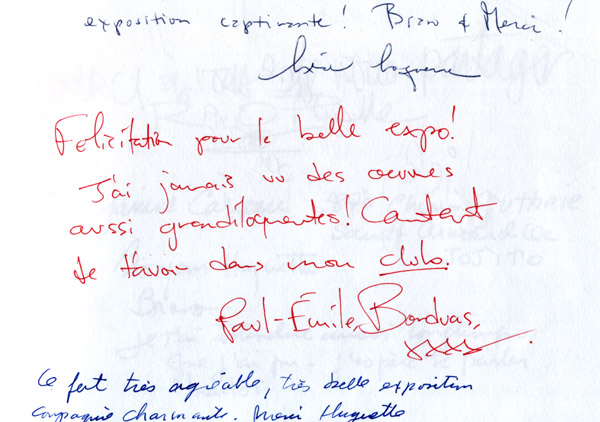 exposition captivante! Bravo & Merci!
Félicitation pour la belle expo!
J'ai jamais vu des oeuvres
aussi grandiloquentes! Content
de t'avoir dans mon clubo.
Paul-Émile Borduas,
xxxx
Ce fut très agréable, très belle exposition
compagnie charmante. Merci Huguette